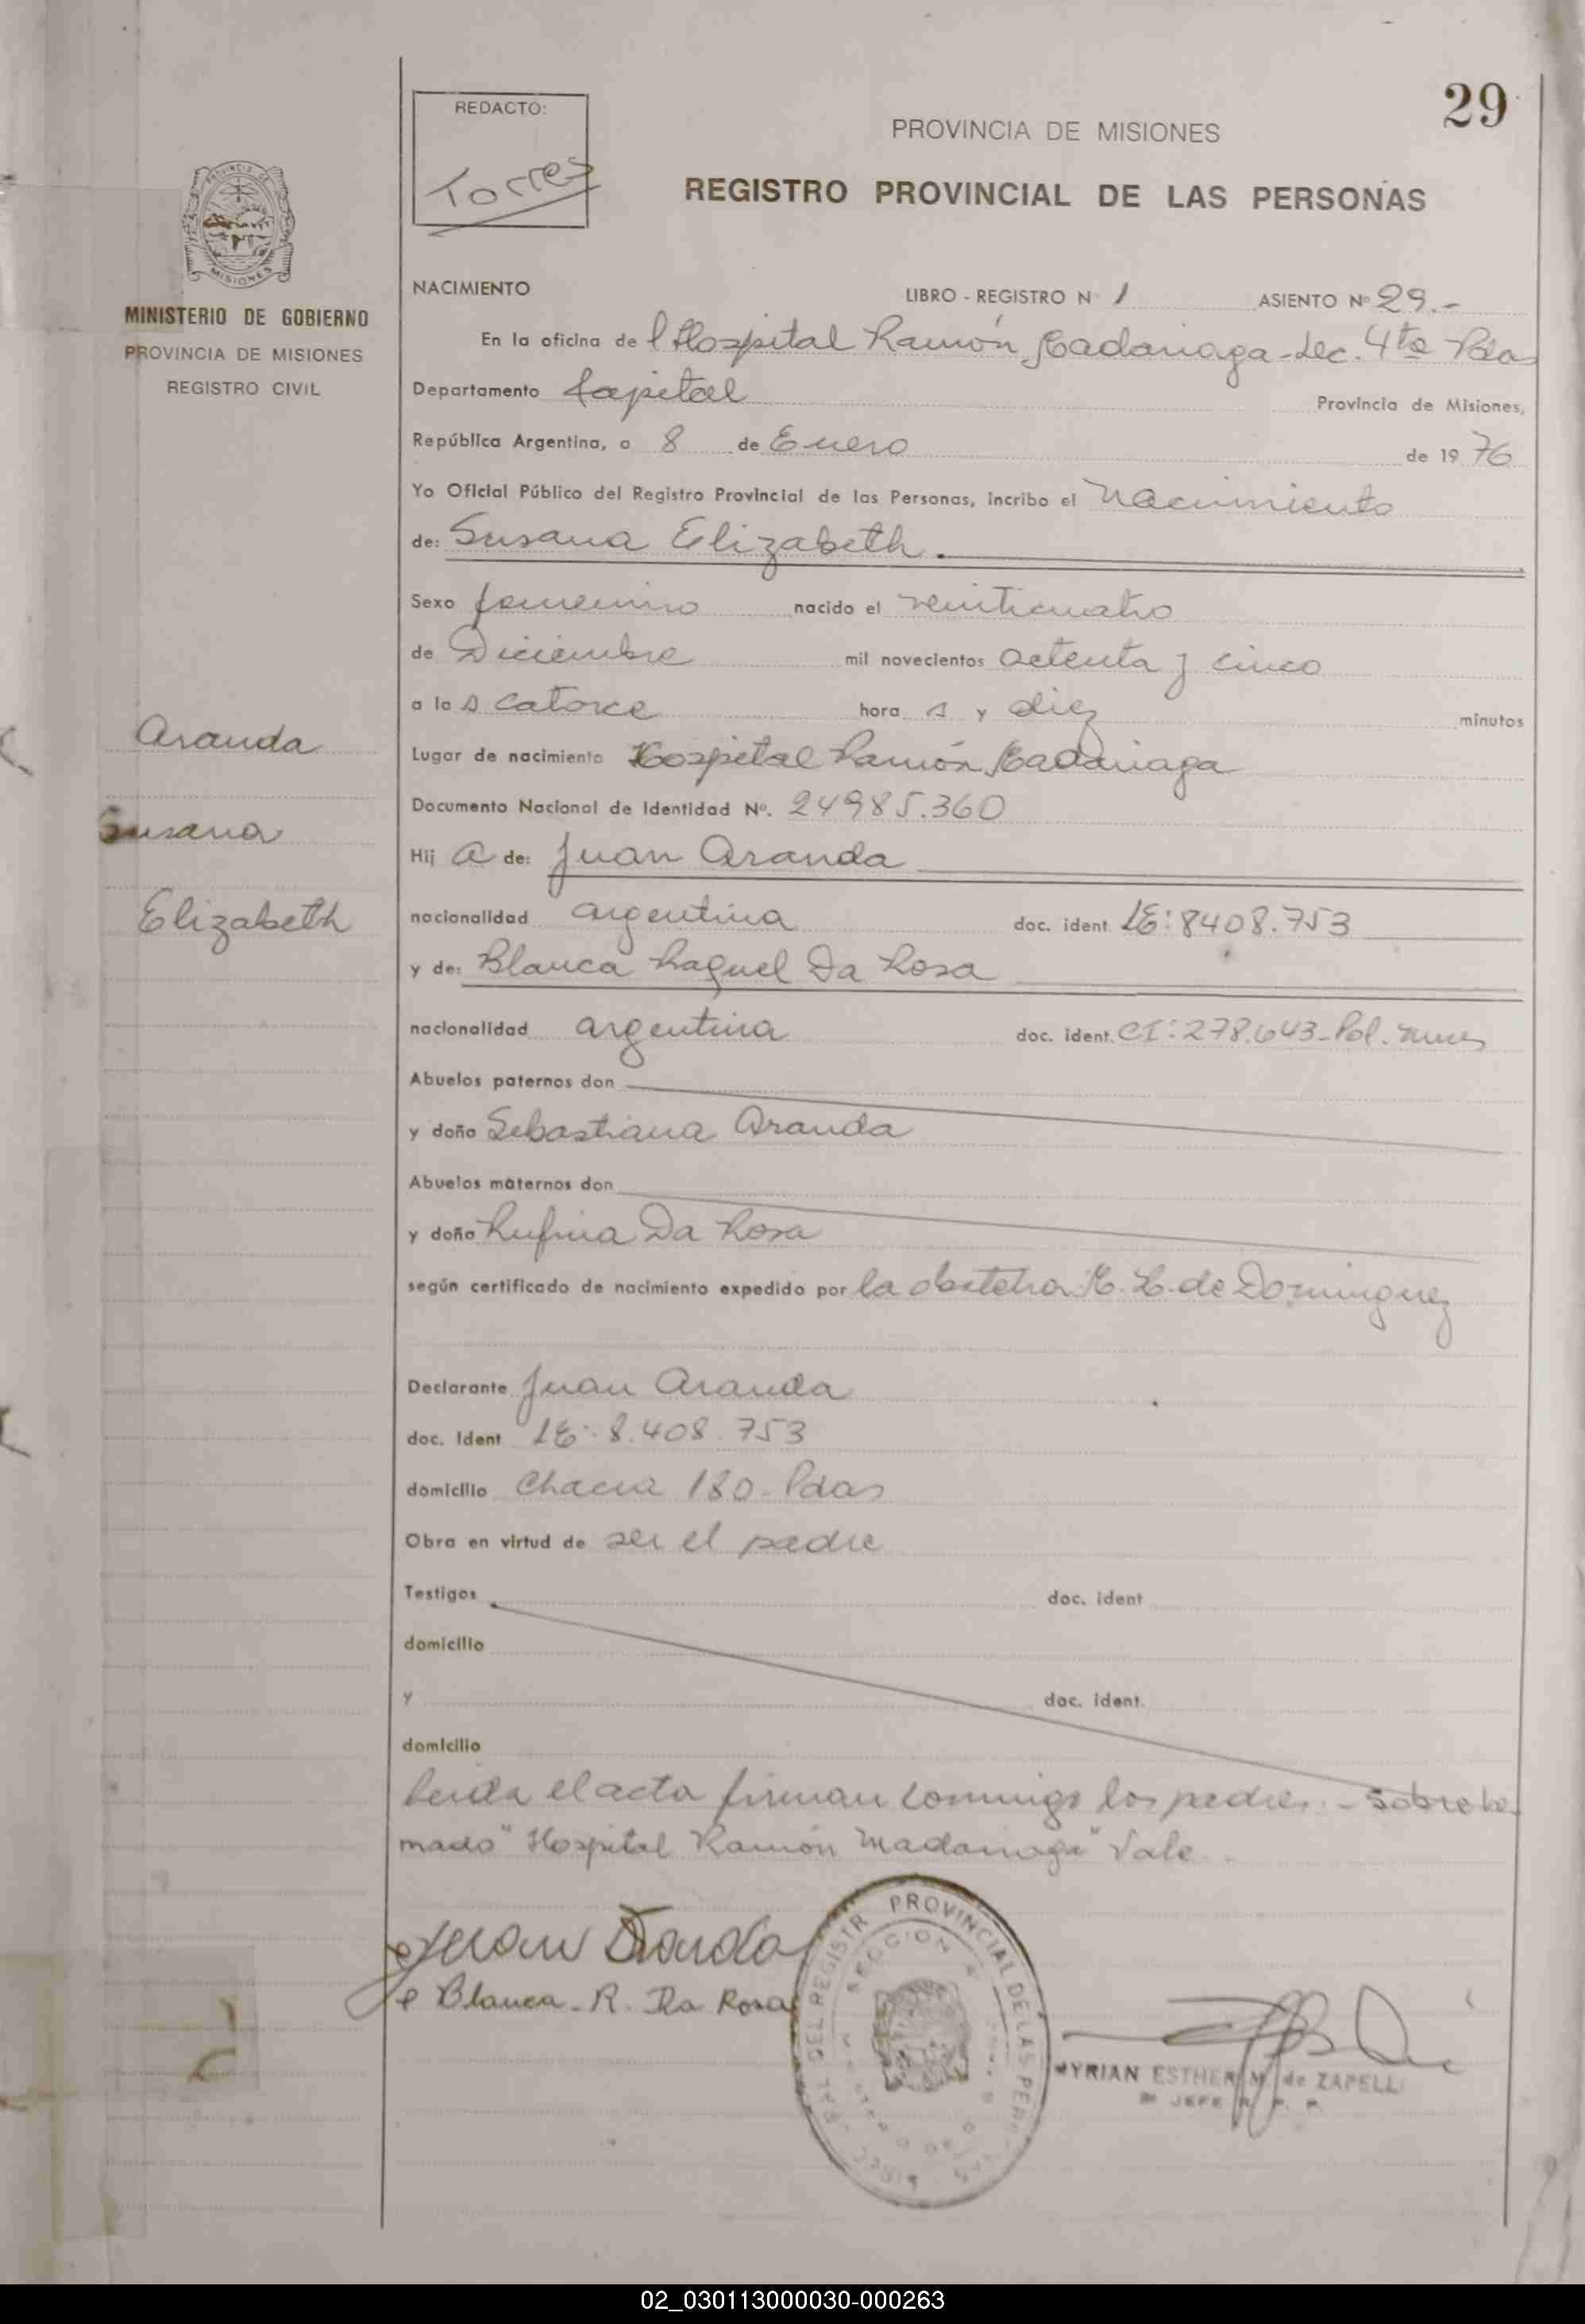 29
REDACTO:
Torres
PROVINCIA DE MISIONES
REGISTRO PROVINCIAL DE LAS PERSONAS
MINISTERIO DE GOBIERNO
PROVINCIA DE MISIONES
REGISTRO CIVIL
NACIMIENTO LIBRO - REGISTRO Nº 1 ASIENTO Nº 29.-
En la oficina del Hospital Ramón Madariaga - Sec. 4ta Pdas
Departamento Capital Provincia de Misiones,
República Argentina, a 8 de Enero de 19 76
Yo Oficial Público del Registro Provincial de las Personas, incribo el Nacimiento
de: Susana Elizabeth.
Sexo femenino nacido el veinticuatro
de Diciembre mil novecientos setenta y cinco
a la s catorce hora s y diez minutos
Aranda
Susana
Elizabeth
Lugar de nacimiento Hospital Ramón Madariaga
Documento Nacional de Identidad Nº. 24985.360
Hij a de: Juan Aranda
nacionalidad argentina doc. ident. LE: 8408.753
y de: Blanca Raquel Da Rosa
nacionalidad argentina doc. ident. CI: 278.643 - Pol. Mnes
Abuelos paternos don
y doña Sebastiana Aranda
Abuelos maternos don
y doña Rufina Da Rosa
según certificado de nacimiento expedido por la obstetra M. H. de Dominguez
Declarante Juan Aranda
doc. Ident LE: 8.408.753
domicilio Chacra 180 - Pdas
Obra en virtud de ser el padre
Testigos doc. ident
domicilio
y doc. ident.
domicilio
Leida el acta firman conmigo los padres. - Sobrerre
mado "Hospital Ramón Madariaga" Vale.
Juan Aranda
Blanca. R. Da Rosa
PROVINCIAL DE LAS PER
DEL REGISTR
SECCION 4
MYRIAN ESTHER M. de ZAPELLI
JEFE R. P. P.
02_030113000030-000263